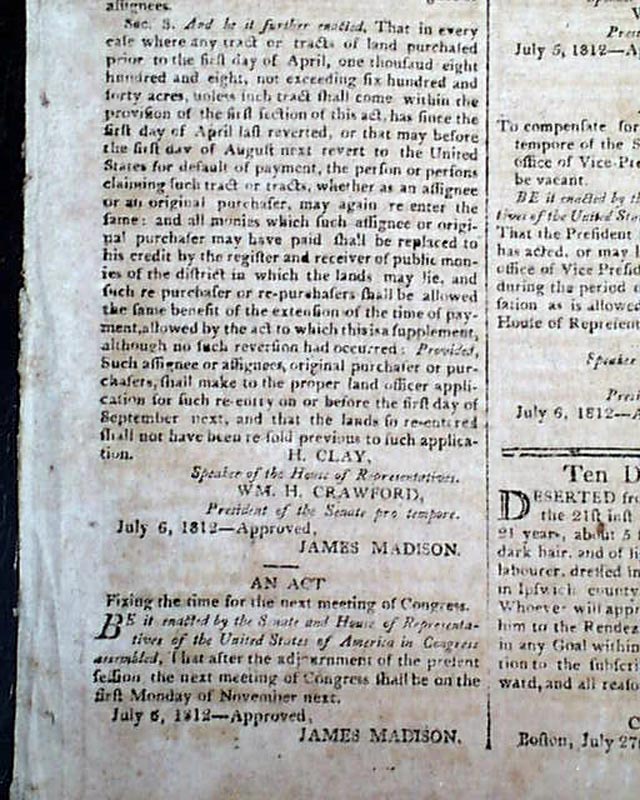 assignees.
Sec. 3. And be it further enacted, That in every
case where any tract or tracts of land purchased
prior to the first day of April, one thousand eight
hundred and eight, not exceeding six hundred and
forty acres, unless such tract shall come within the
provision of the first section of this act, has since the
first day of April last reverted, or that may before
the first day of August next revert to the United
States for default of payment, the person or persons
claiming such tract or tracts, whether as an assignee
or an original purchaser, may again re enter the
same: and all monies which such assignee or origi-
nal purchaser may have paid shall be replaced to
his credit by the register and receiver of public mon-
ies of the district in which the lands may lie, and
such re purchaser or re-purchasers shall be allowed
the same benefit of the extension of the time of pay-
ment, allowed by the act to which this is a supplement,
although no such reversion had occurred: Provided,
Such assignee or assignees, original purchaser or pur-
chasers, shall make to the proper land officer appli-
cation for such re-entry on or before the first day of
September next, and that the lands so re-entered
shall not have been re sold previous to such applica-
tion.
H. CLAY,
Speaker of the House of Representatives.
WM. H. CRAWFORD,
President of the Senate pro tempore.
July 6, 1812—Approved,
JAMES MADISON.
AN ACT
Fixing the time for the next meeting of Congress.
BE it enacted by the Senate and House of Representa-
tives of the United States of America in Congress
assembled, That after the adjournment of the present
session, the next meeting of Congress shall be on the
first Monday of November next.
July 6, 1812—Approved,
JAMES MADISON.
July 5, 1812—A
To compensate for
tempore of the S
office of Vice-Pre
be vacant.
BE it enacted by th
tives of the United Sta
That the President
has acted, or may
office of Vice Presid
during the period
sation as is allowed
House of Represent
Speaker
Presi
July 6, 1812—A
Ten D
DESERTED fro
the 21st inst.
21 years, about 5
dark hair, and of li
labourer, dressed in
in Ipswich county
Whoever will appr
him to the Rendez
in any Goal within
tion to the subscri
ward, and all reaso
C
Boston, July 27